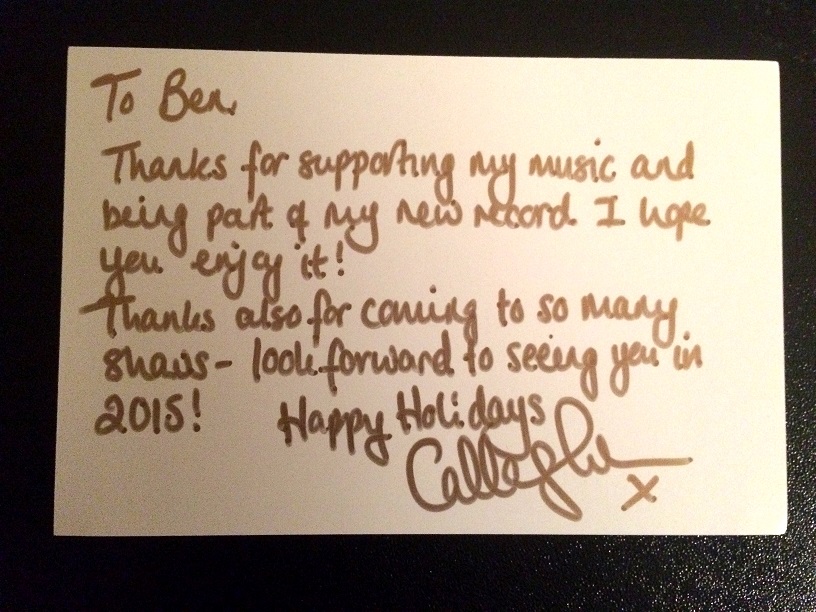 To Ben,
Thanks for supporting my music and
being part of my new record. I hope
you enjoy it!
Thanks also for coming to so many
shows - look forward to seeing you in
2015! Happy Holidays
Callaghan
x